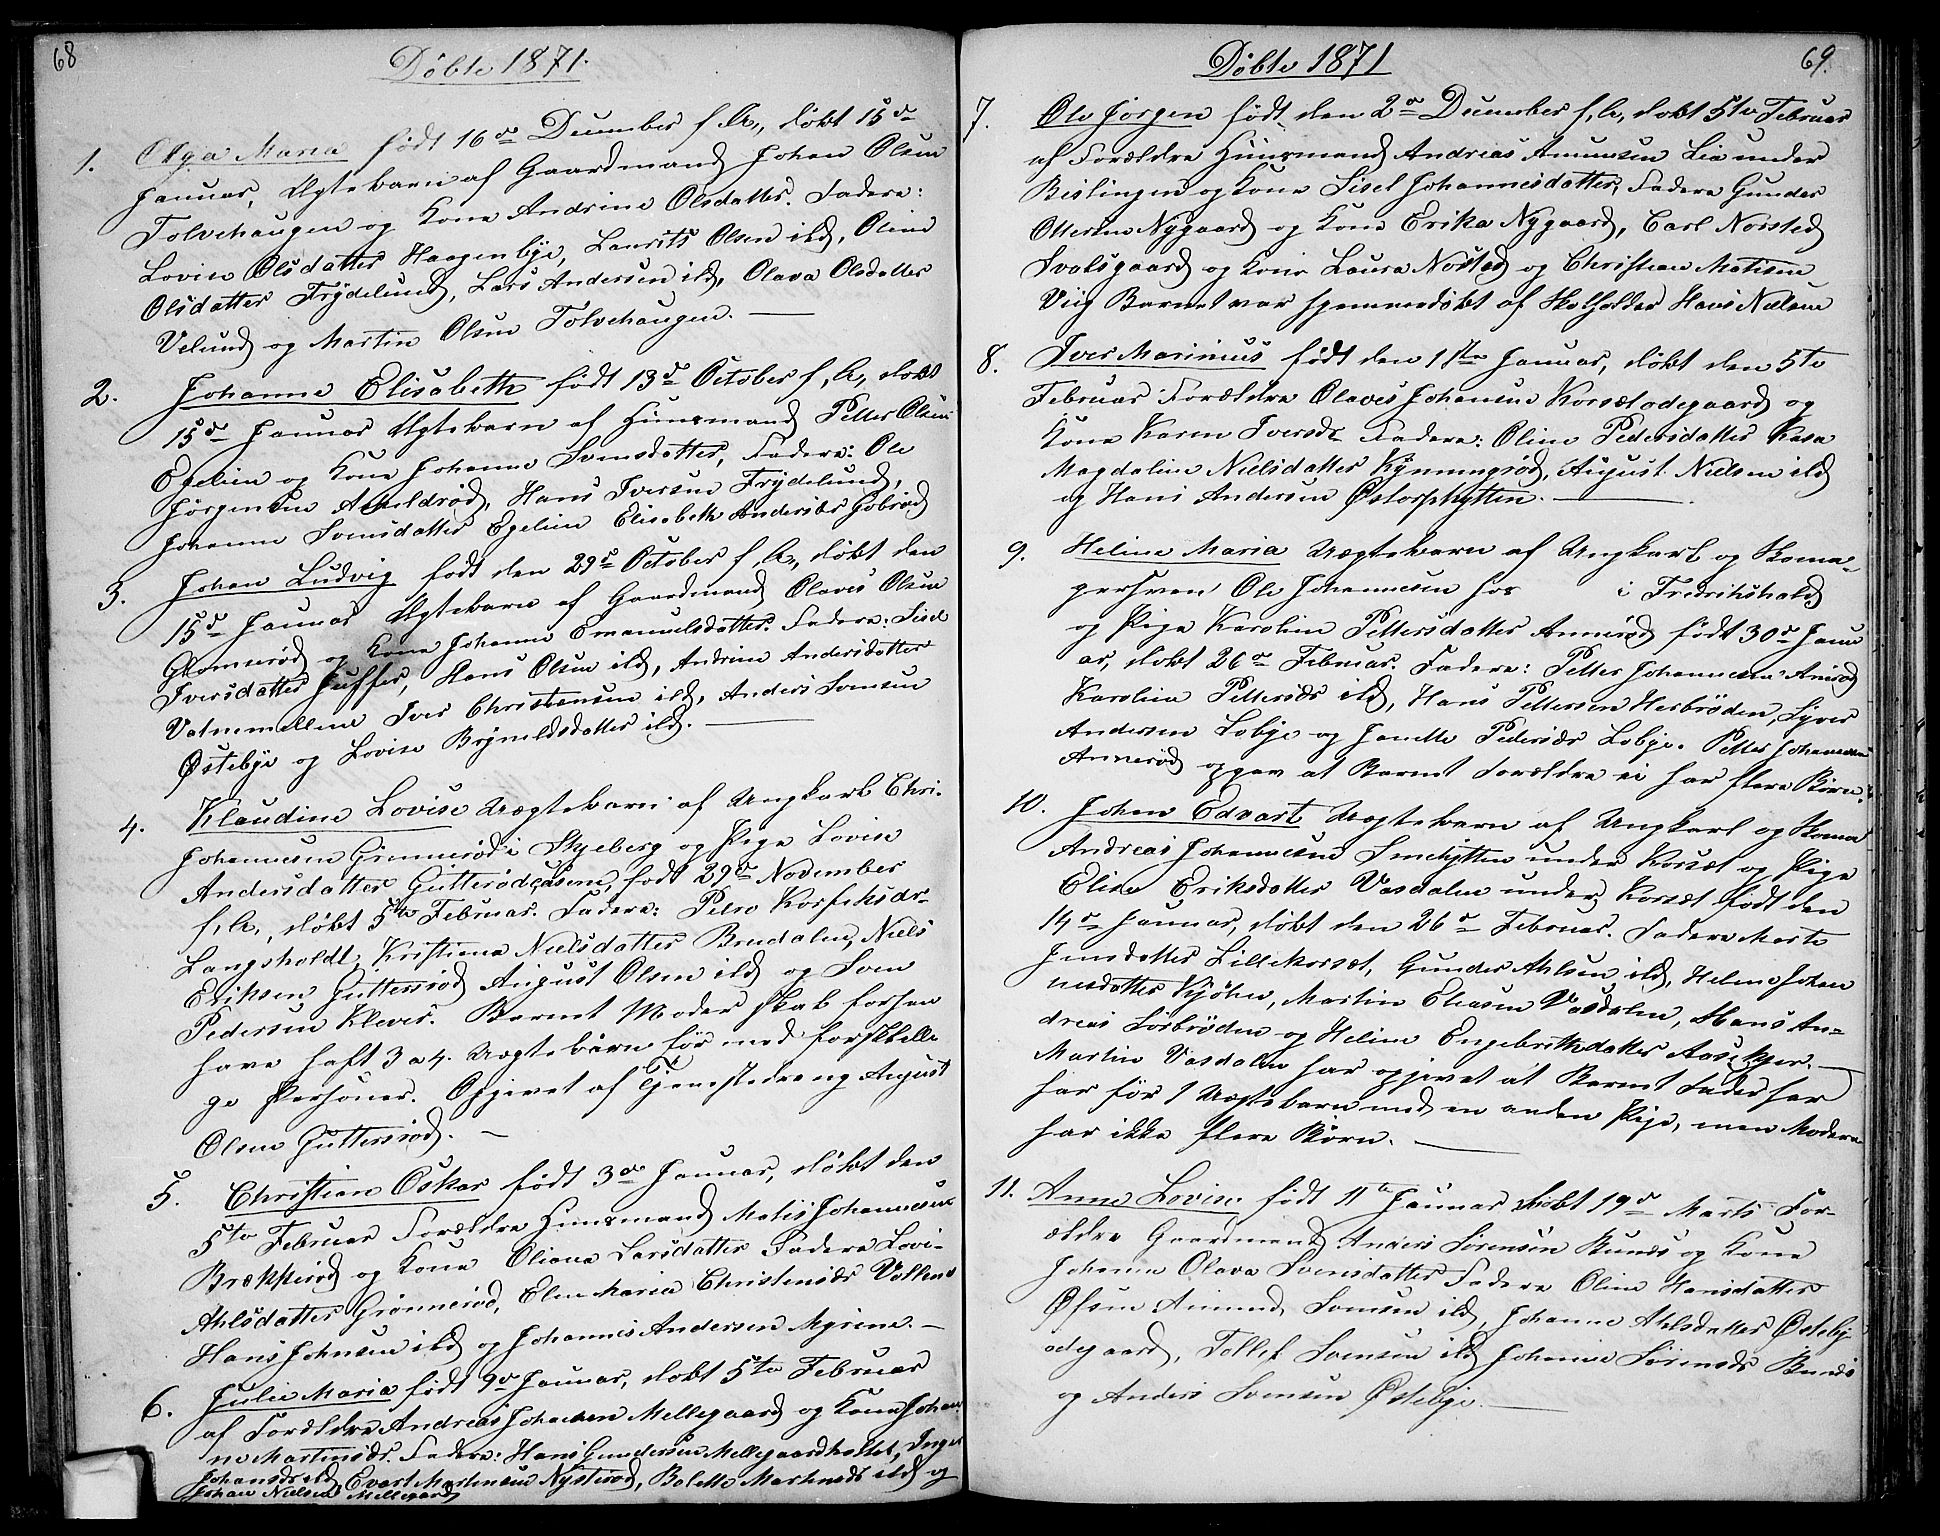 68
Döbte 1871.
1. Olga Maria født 16de December f. A., døbt 15de
Januar, Ægtebarn af Gaardmand Johan Olsen
Tolvehaugen og Kone Andrine Olsdatter. Faddere:
Lovise Olsdatter Haagenbye, Laurits Olsen ibd, Oline
Olsdatter Frydelund, Lars Andersen ibd, Olava Olsdatter
Velund og Martin Olsen Tolvehaugen. —
2. Johanne Elisabeth født 13de October f. A., døbt
15de Januar Ægtebarn af Huusmand Petter Olsen
Egelien og Kone Johanne Svensdatter, Faddere: Ole
Jørgensen, Hans Iversen Frydelund,
Johanne Svensdatter Egelien Elisabeth Andersdr
3. Johan Ludvig født den 29de October f. A., døbt den
15de Januar Ægtebarn af Gaardmand Olaves Olsen
Glomerød og Kone Johanne Emanuelsdatter. Faddere: Sisel
Iversdatter, Hans Olsen ibd, Andrine Andersdatter
Vatnemellene Iver Christensen ibd, Anders Svensen
Østebye og Lovise Bryneldsdatter ibd. —
4. Klaudine Lovise Uægtebarn af Ungkarl Chri.
Johannesen Grimmerød i Skjeberg og Pige Lovise
Andersdatter Gutterødeasene, født 29de November
f. A., døbt 5te Februar. Faddere: Petro
Langsholdt, Kristiana Nielsdatter Brudalen, Niels
Eriksen Gutterrød August Olsen ibd og Sven
Pedersen Kleves. Barnet Moder skab forhen
have haft 3 a 4. Uægtebörn før med forskjelle
ge Personer. Opgivet af og August
Olsen Gutterrød. —
5. Christian Oskar født 3de Januar, døbt den
5te Februar Forældre Huusmand Matis Johannesen
Brækkerød og Kone Oliana Larsdatter Faddere Lovi-
Ahlsdatter Grønnerød, Elen Maria Christensdr Vollene
Hans Johnsen ibd og Johannis Andersen Myrene. —
6. Julie Maria født 9de Januar, døbt 5te Februar
af Forældre Andreas Johansen Mellegaard og Kone Johan
ne Martinsdr. Faddere: Hans Gundersen Mellegaardholtet, Inger
Johansdr ibd, Evart Martensen Nysterød, Bolette Martinsdr ibd og
Johan Nielsen Mellegaard
69.
Döbte 1871
7. Ole Jörgen født den 2de December f. A., døbt 5te Februar
af Forældre Huusmand Andreas Amunsen Lie under
Bislingen og Kone Sisel Johannesdatter, Faddere Gunder
Ottersen Nygaard og Kone Erika Nygaard, Carl Norsted
Svalsgaard og Kone Laura Norsted og Christian Matisen
Viig Barnet var hjemmedøbt af Skolholder Hans Nielsen
8. Iver Marinius født den 1ste Januar, døbt den 5te
Februar Forældre Olaves Johansen Korsetødegaard og
Kone Karen Iversdr Faddere: Oline Pedersdatter Kasa
Magdaline Nielsdatter Kynningrød, August Nielsen ibd
og Hans Andersen Østorphytten. —
9. Heline Maria Uægtebarn af Ungkarl og Skoma-
gersven Ole Johannesen hos i Fredrikshald
og Pige Karoline Pettersdatter Annerød født 30de Janu
ar, døbt 26de Februar. Faddere: Petter Johannesen Anrød
Karolina Pettersdr ibd, Hans Pettersen Herbrøden, Syver
Andersen Lobye og Janette Pedersdr Lobye. Petter Johannesen
Annerød opgav at Barnet Forældre ei har flere Børn.
10. Johan Edvart Uægtebarn af Ungkarl og Skoma
Andreas Johannesen Smehytten under Korset og Pige
Elise Eriksdatter Vasdalen under Korset født den
14de Januar, døbt den 26de Februar. Faddere Marte
Jensdatter Lillekorset, Gunder Ahlsen ibd, Helene Johan
nesdatter Kjøhen, Martin Eliasen Vasdalen, Hans An-
dreas Sørbrøden og Heline Engebrethsdatter Aasekjær. —
Martin Vasdalen har opgivet at Barnet Fader har
har før 1 Uægtebarn med en anden Pige, men Moderen
har ikke flere Børn. —
11. Anne Lovise født 11te Januar døbt 19de Marts For-
ældre Gaardmand Anders Sørensen Bunæs og Kone
Johanne Olava Svensdatter Faddere Oline Hansdatter
Øfsne Amund Svensen ibd, Johanne Ahlsdatter Østeby
ødegaard, Tollef Svensen ibd Johanne Sørensdr Bunæs
og Anders Svensen Østebye. —